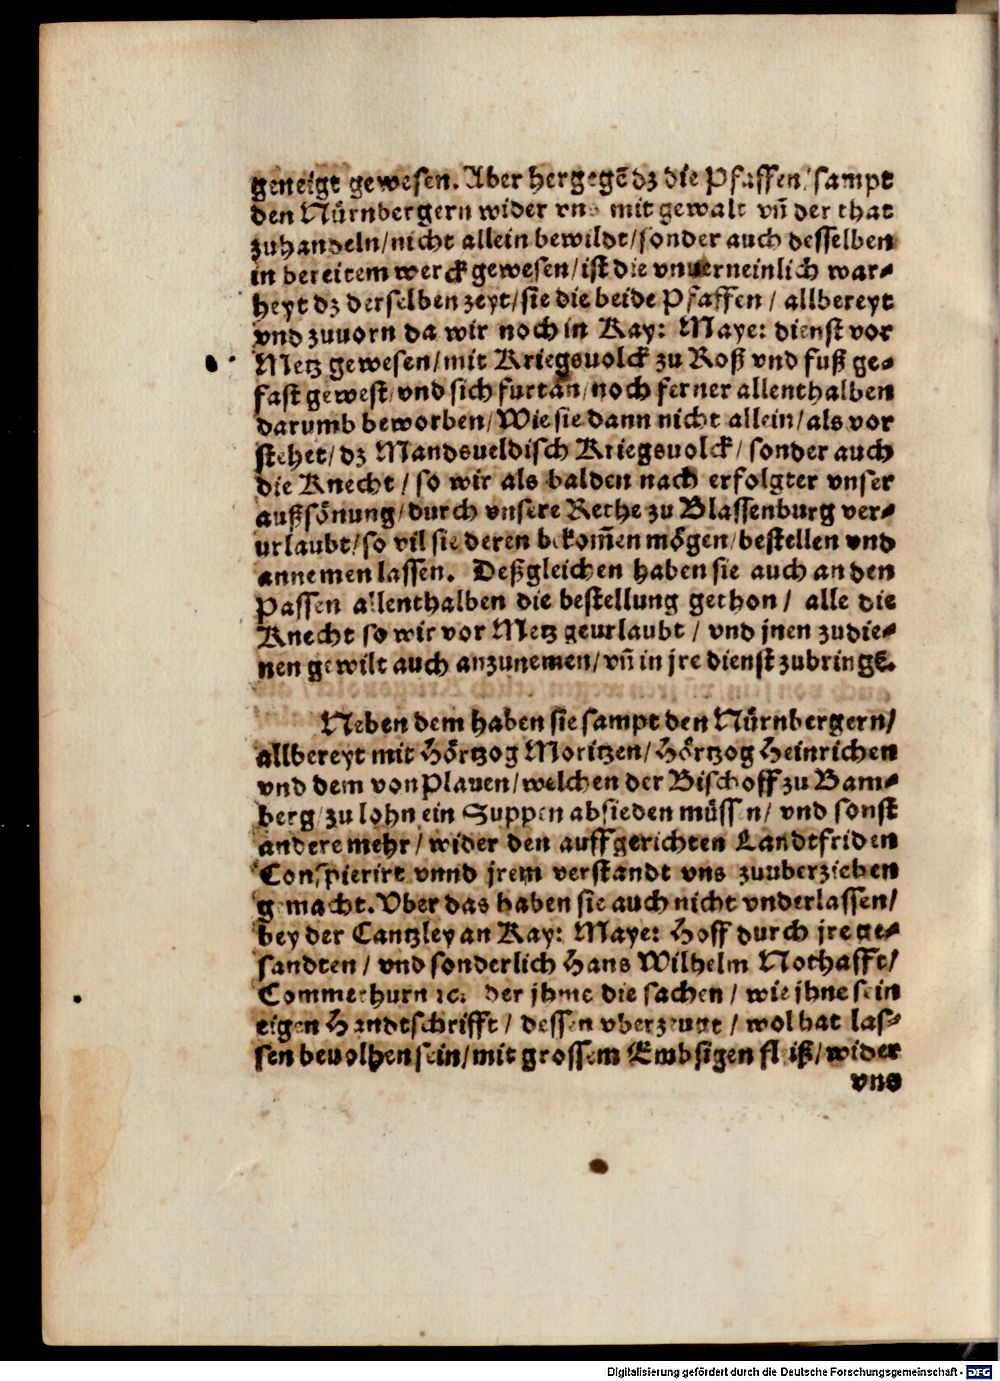 geneigt gewesen. Aber hergegē dz die Pfaffen / sampt
den Nürnbergern wider vns mit gewalt vñ der that
zuhandeln / nicht allein bewildt / sonder auch desselben
in bereitem werck gewesen / ist die vnuerneinlich war-
heyt dz derselben zeyt / sie die beide Pfaffen / allbereyt
vnd zuuorn da wir noch in Kay: Maye: dienst vor
Metz gewesen / mit Kriegsuolck zu Roß vnd fuß ge-
fast gewest / vnd sich furtan / noch ferner allenthalben
darumb beworben / Wie sie dann nicht allein / als vor
stehet / dz Mandsueldisch Kriegsuolck / sonder auch
die Knecht / so wir als balden nach erfolgter vnser
außsönung / durch vnsere Rethe zu Blassenburg ver-
urlaubt / so vil sie deren bekom̃en mögen / bestellen vnd
annemen lassen. Deßgleichen haben sie auch an den
Passen allenthalben die bestellung gethon / alle die
Knecht so wir vor Metz geurlaubt / vnd jnen zudie-
nen gewilt auch anzunemen / vñ in jre dienst zubringē.
Neben dem haben sie sampt den Nürnbergern /
allbereyt mit Hörtzog Moritzen / Hörtzog Heinrichen
vnd dem von Plauen / welchen der Bischoff zu Bam-
berg / zu lohn ein Suppen absieden müssen / vnd sonst
andere mehr / wider den auffgerichten Landtfriden
Conspierirt vnnd jrem verstandt vns zuuberziehen
gemacht. Vber das haben sie auch nicht vnderlassen /
bey der Cantzley an Kay: Maye: Hoff durch jre ge-
sandten / vnd sonderlich Hans Wilhelm Nothafft /
Commethurn ꝛc. der jhme die sachen / wie jhne sein
eigen Handtschrifft / dessen vberzeugt / wol hat las-
sen beuolhen sein / mit grossem Embsigen fleiß / wider
vns
Digitalisierung gefördert durch die Deutsche Forschungsgemeinschaft - DFG